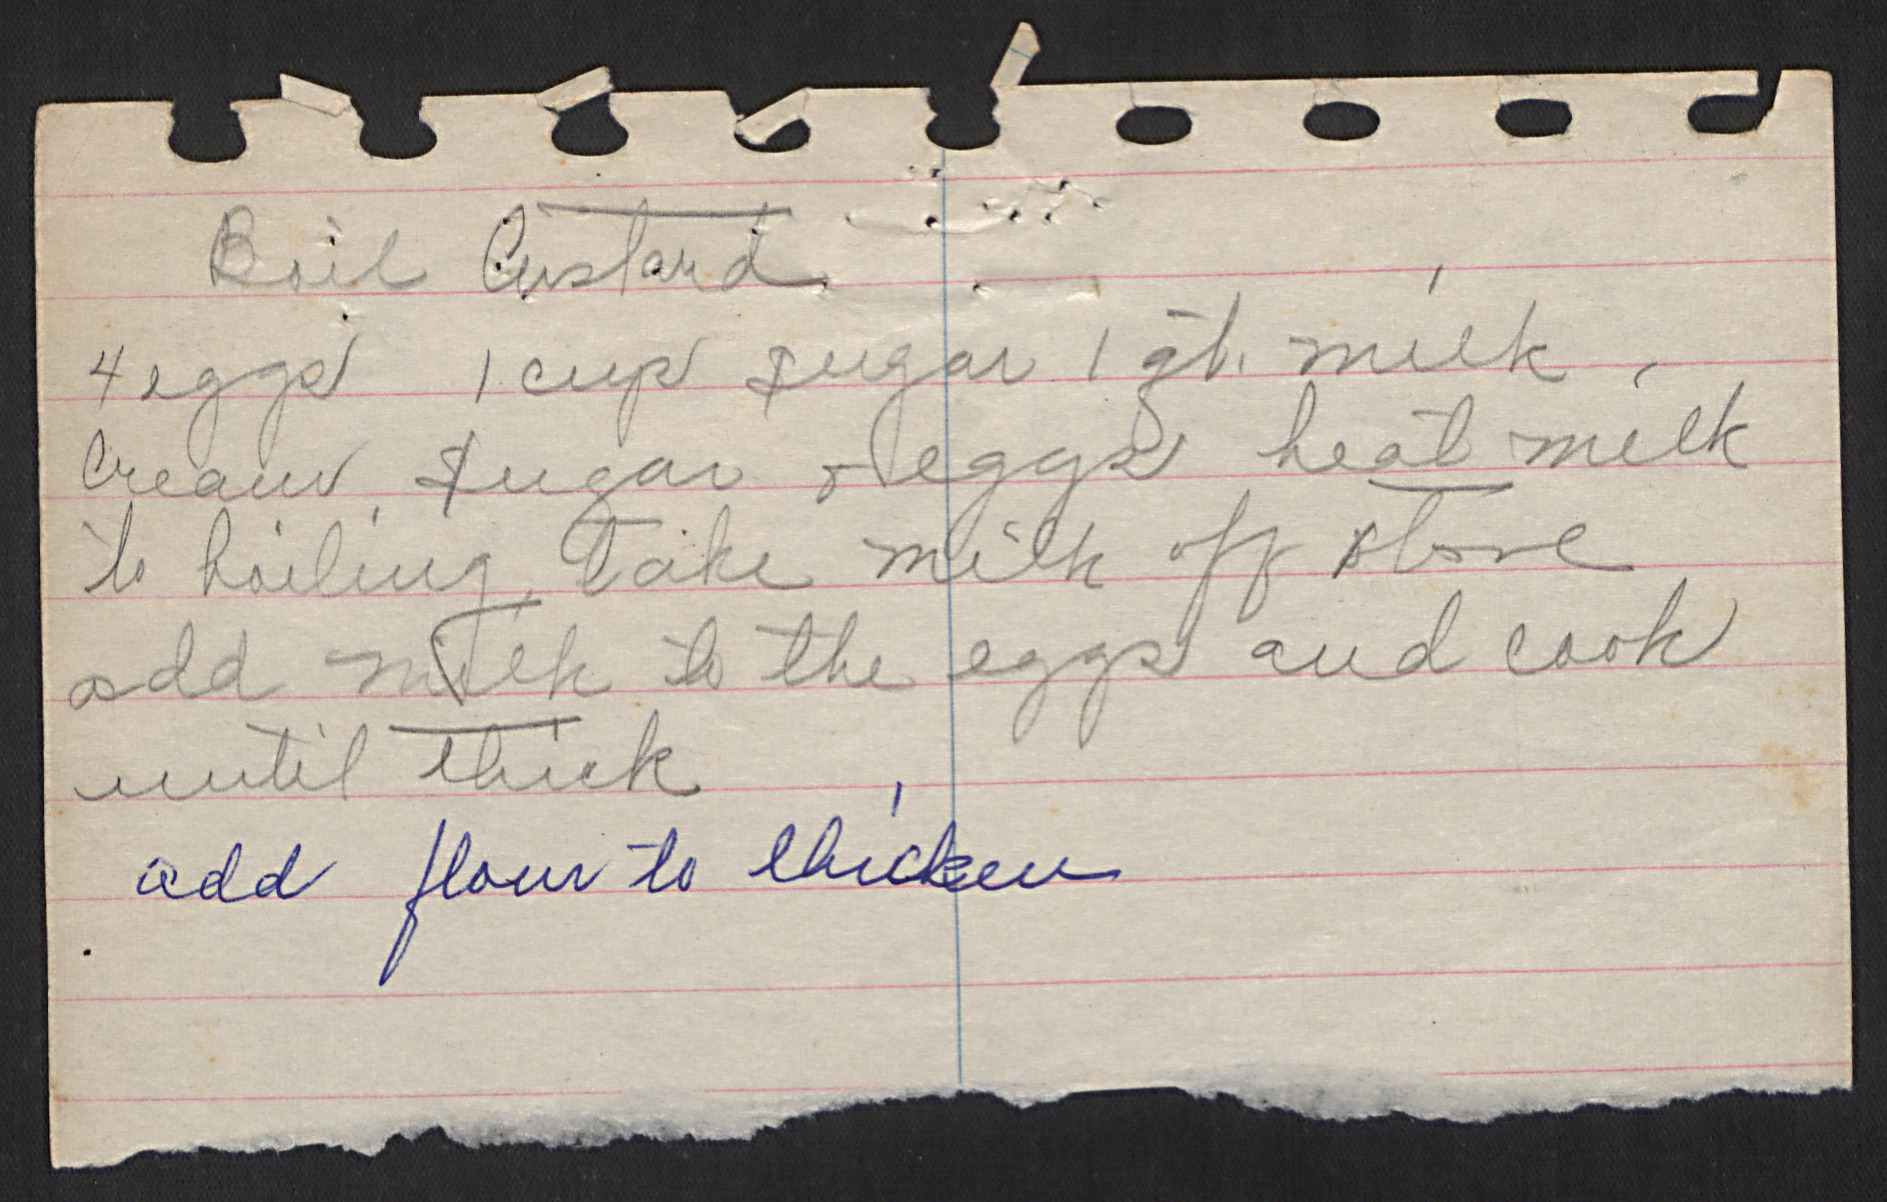 Boil Custard
4 eggs 1 cup sugar 1 qt. milk
Cream sugar & eggs heat milk
to boiling, Take milk off stove
add milk to the eggs and cook
until thick
add flour to thicken